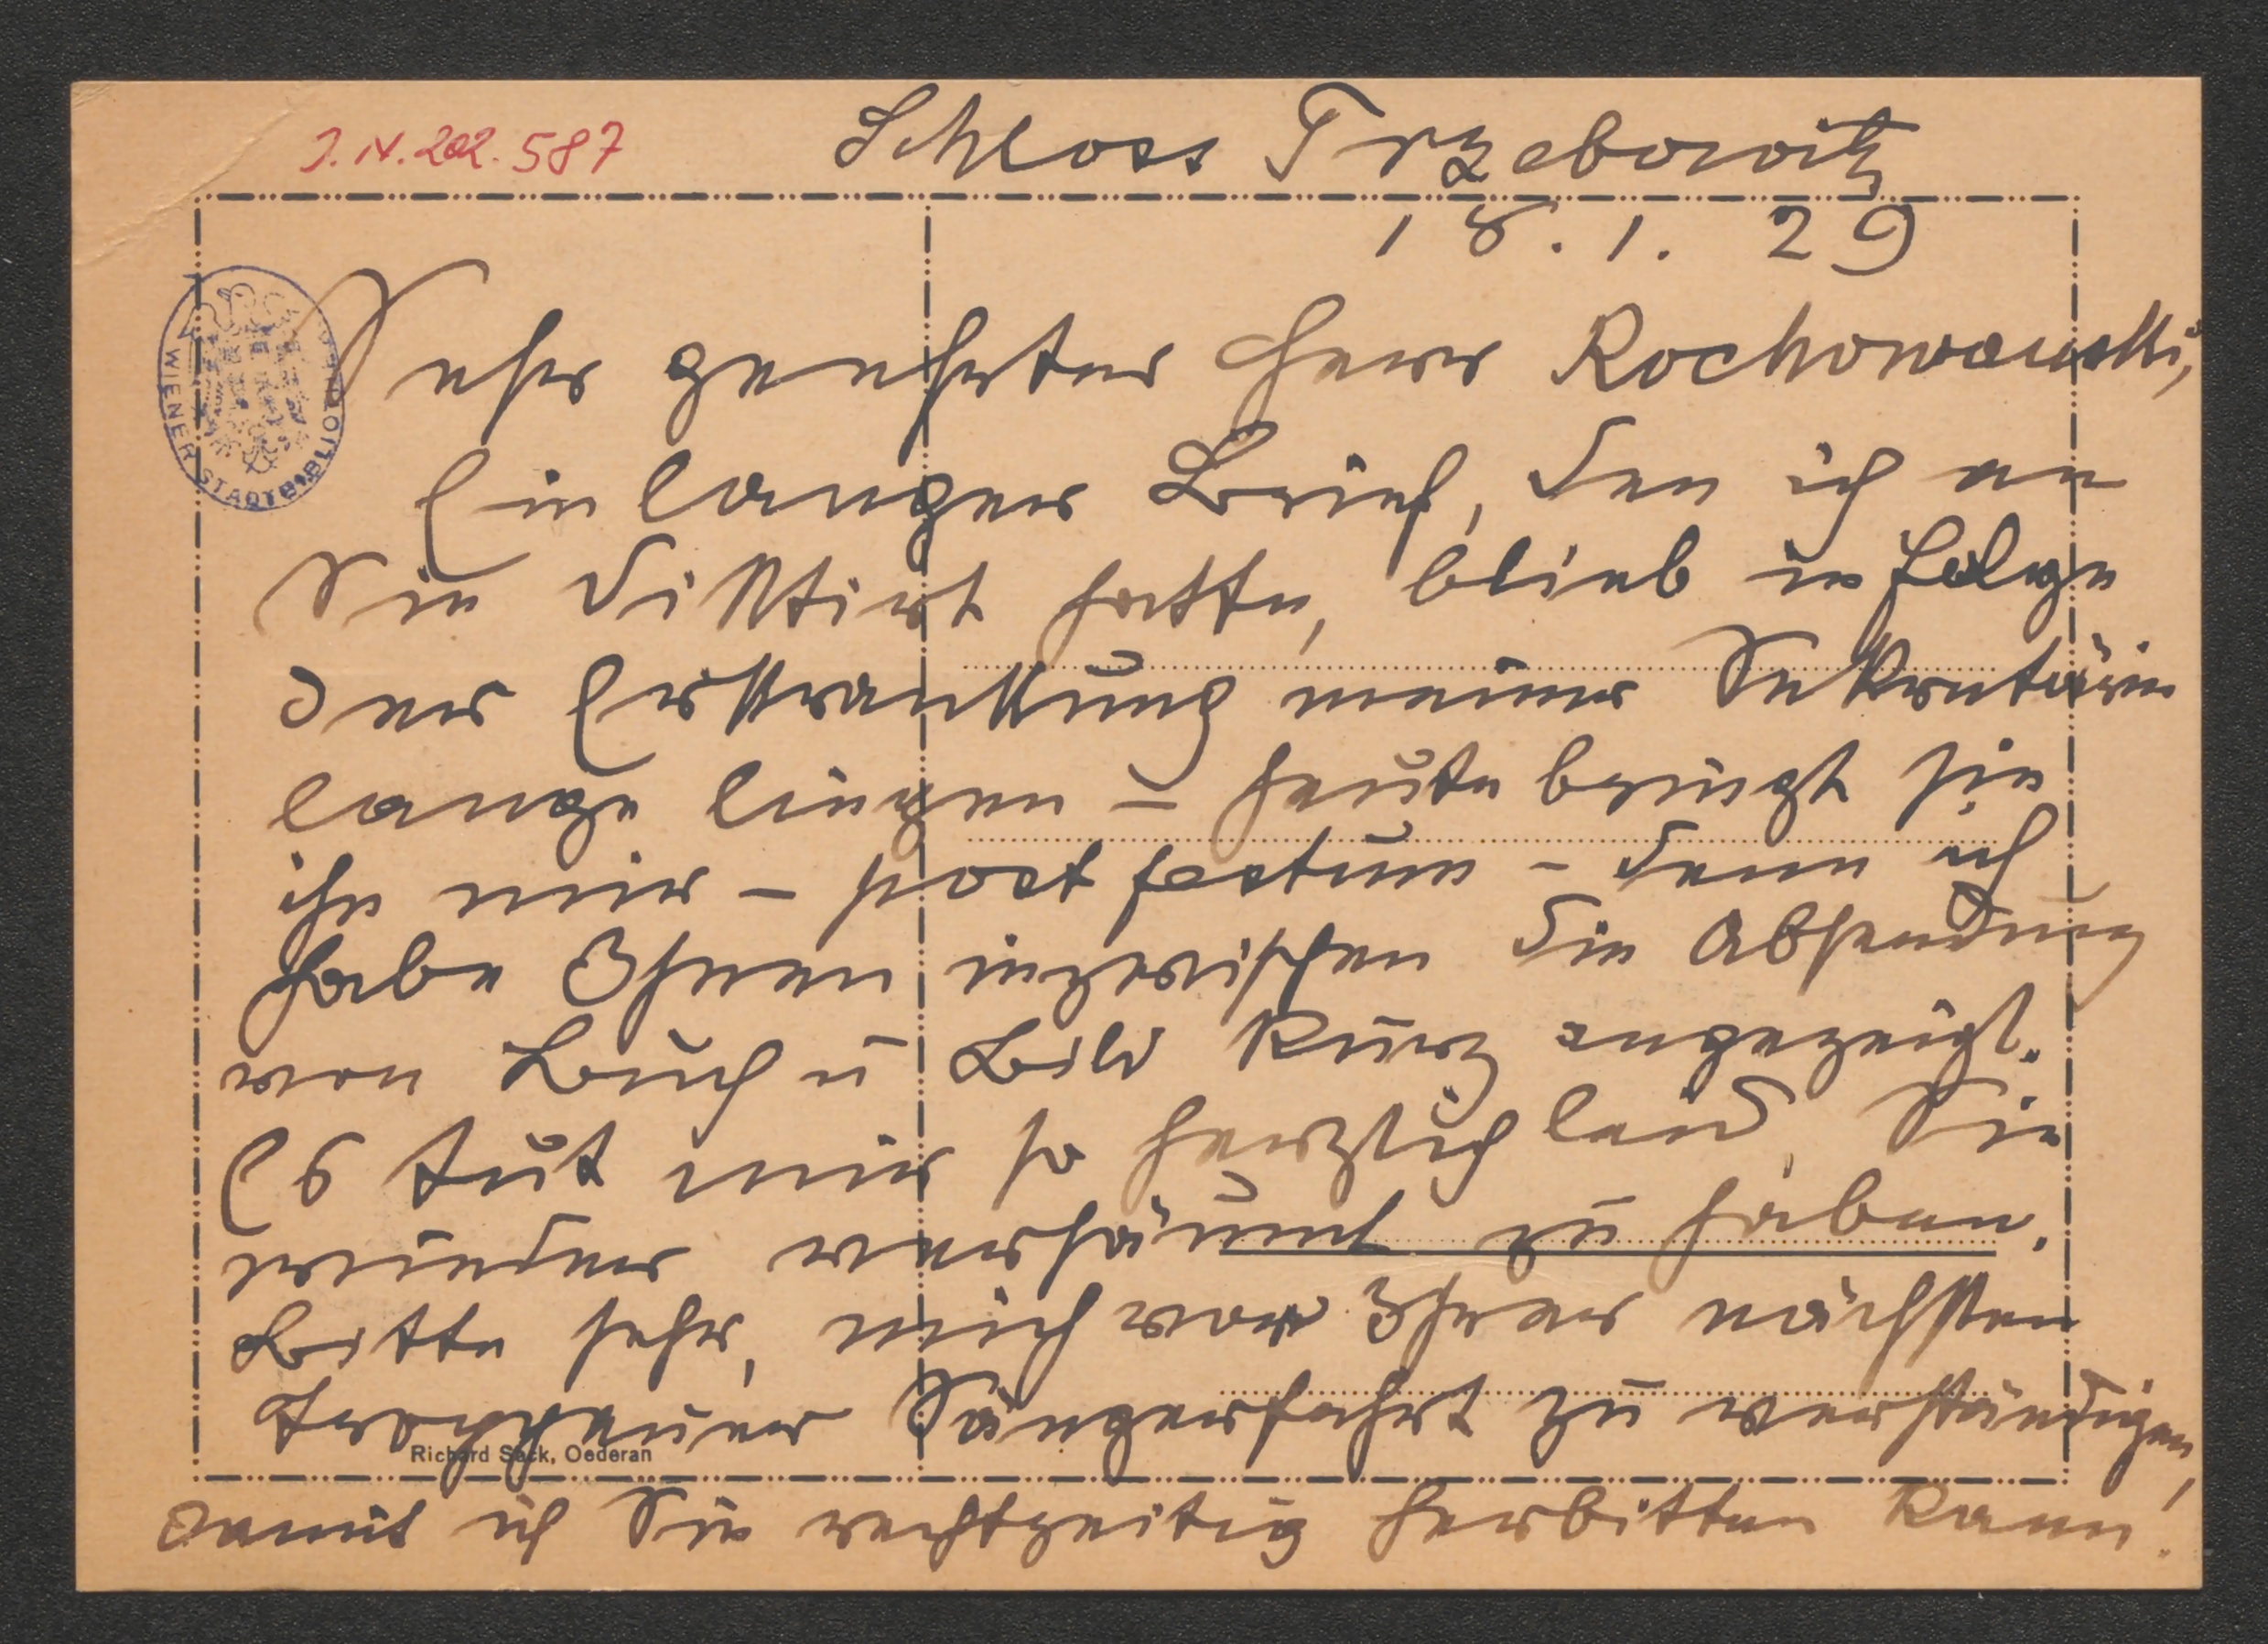 J.N.202.587
Schloss Trzebowitz
18. 1. 29
WIENER STADTBIBLIOTHEK
Sehr geehrter Herr Rochowanski,
Ein langer Brief, den ich an
Sie diktirt hatte, blieb in folge
der Erkrankung meiner Sekretärin
lange liegen - heute bringt sie
ihn mir - post festum - denn ich
habe Ihnen inzwischen die Absendung
von Buch u Bild kurz angezeigt.
Es tut mir so herzlich leid, Sie
wieder versäumt zu haben.
Bitte sehr, mich vor Ihrer nächsten
Troppauer Sängerfahrt zu verständigen,
Richard Sack, Oederan
damit ich Sie rechtzeitig herbitten kann!